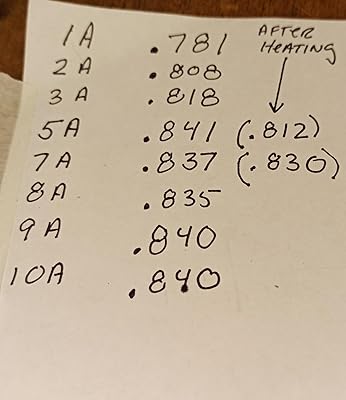 AFTER
HEATING
1A .781
2A .808
3A .818
5A .841 (.812)
7A .837 (.830)
8A .835
9A .840
10A .840